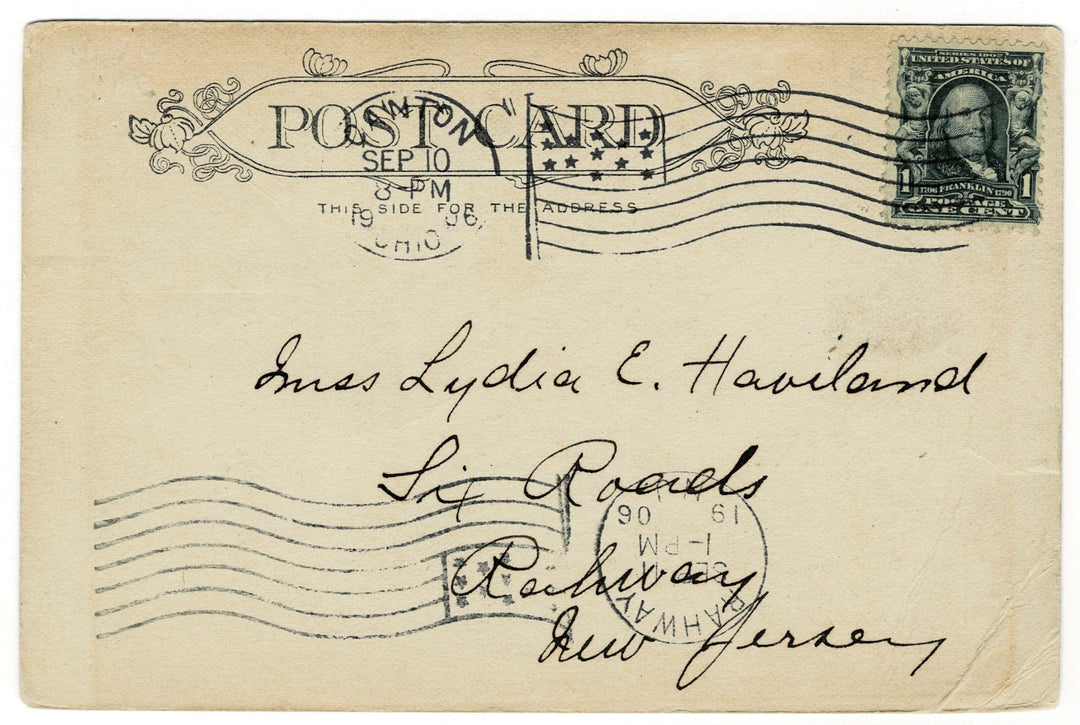 POST CARD
THIS SIDE FOR THE ADDRESS
CANTON
SEP 10
8 PM
1906
OHIO
SERIES 1902
UNITED STATES OF
AMERICA
1 1706 FRANKLIN 1790 1
POSTAGE
ONE CENT
Miss Lydia E. Haviland
Six Roads
Rahway
New Jersey
RAHWAY
1-PM
19 06